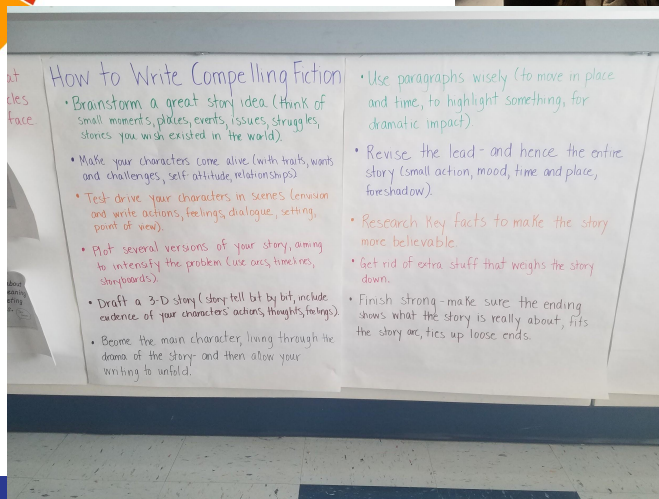 at
cles
face
How to Write Compelling Fiction
• Brainstorm a great story idea (think of
small moments, places, events, issues, struggles,
stories you wish existed in the world).
• Make your characters come alive (with traits, wants
and challenges, self attitude, relationships)
• Test drive your characters in scenes (envision
and write actions, feelings, dialogue, setting,
point of view).
• Plot several versions of your story, aiming
to intensify the problem (use arcs, timelines,
storyboards).
• Draft a 3-D story (story tell bit by bit, include
evidence of your characters' actions, thoughts, feelings).
• Become the main character, living through the
drama of the story- and then allow your
writing to unfold.
• Use paragraphs wisely (to move in place
and time, to highlight something, for
dramatic impact).
• Revise the lead - and hence the entire
story (small action, mood, time and place,
foreshadow).
• Research Key facts to make the story
more believable.
• Get rid of extra stuff that weighs the story
down.
• Finish strong - make sure the ending
shows what the story is really about, fits
the story arc, ties up loose ends.